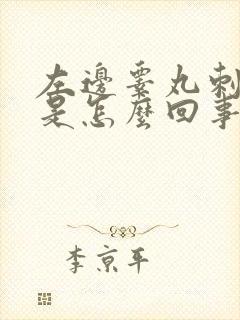 左邊睾丸刺
是怎麼回事
李京平